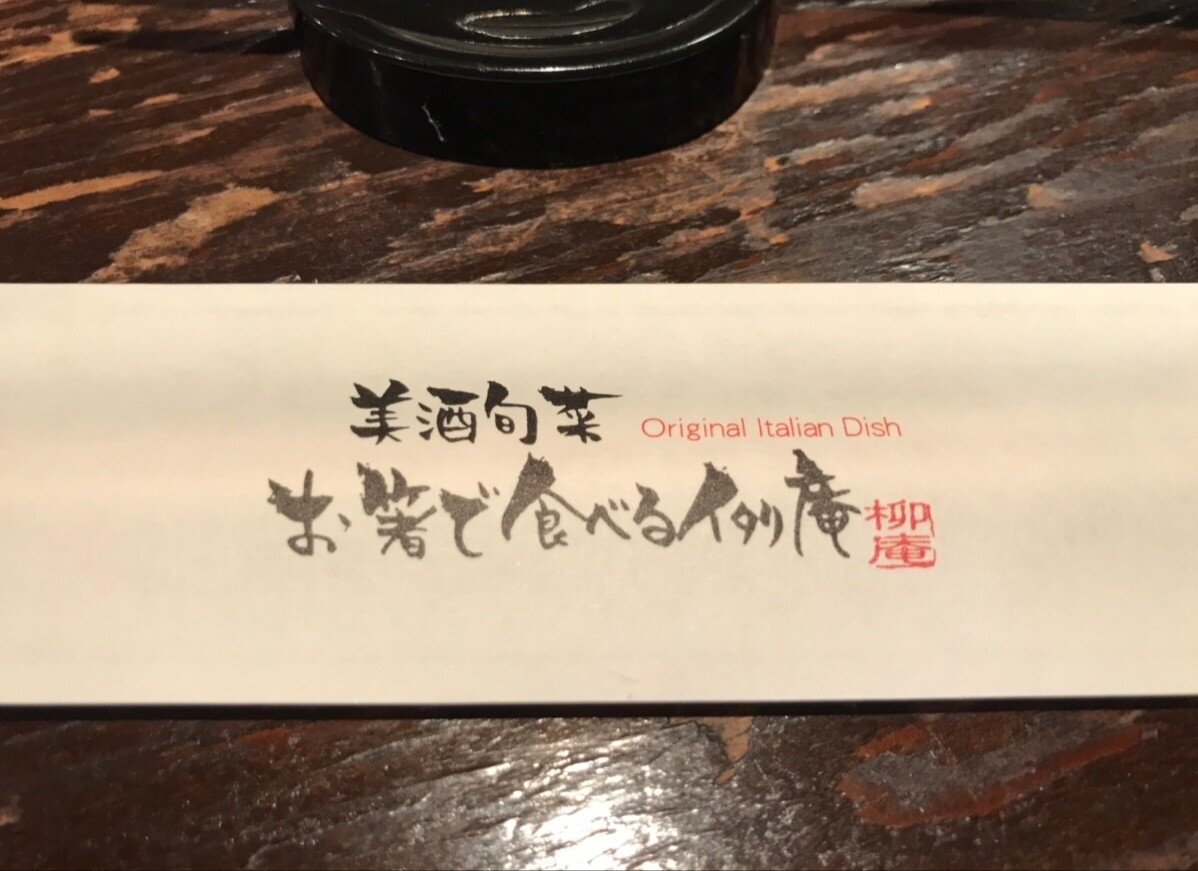 美酒旬菜 Original Italian Dish
お箸で食べるイタリ庵
柳
庵